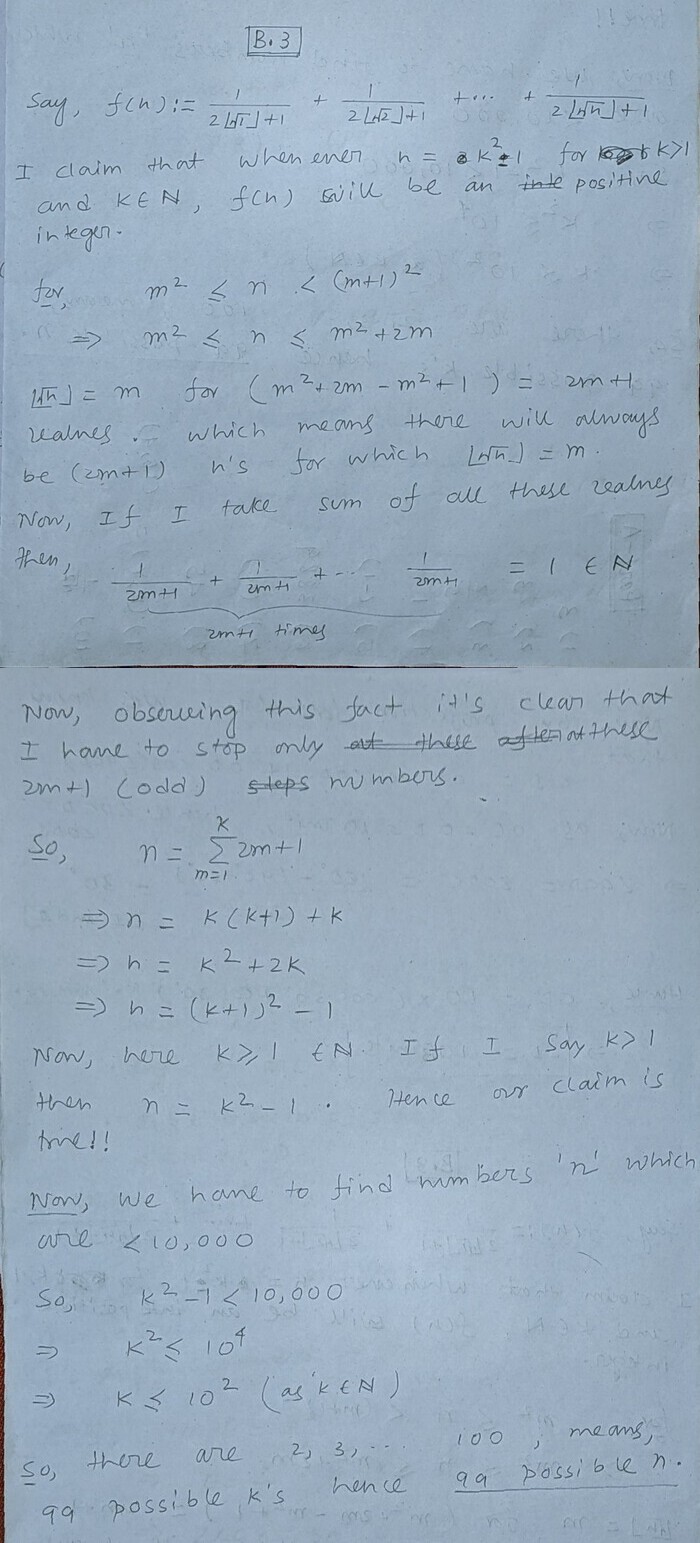 B.3
Say, f(n) := 1/(2⌊√1⌋+1) + 1/(2⌊√2⌋+1) + ... + 1/(2⌊√n⌋+1)
I claim that when ever n = k²-1 for k>1
and k∈N, f(n) will be an positive
integer.
for, m² ≤ n < (m+1)²
⇒ m² ≤ n ≤ m²+2m
⌊√n⌋ = m for (m²+2m-m²+1) = 2m+1
values. which means there will always
be (2m+1) n's for which ⌊√n⌋ = m.
Now, If I take sum of all these values
then, 1/(2m+1) + 1/(2m+1) + ... 1/(2m+1) = 1 ∈ N
2m+1 times
Now, observing this fact it's clear that
I have to stop only at these
2m+1 (odd) numbers.
So, n = Σ_{m=1}^{k} 2m+1
⇒ n = k(k+1)+k
⇒ n = k²+2k
⇒ n = (k+1)²-1
Now, here k≥1 ∈N. If I say k>1
then n = k²-1. Hence our claim is
true!!
Now, we have to find numbers 'n' which
are <10,000
So, k²-1<10,000
⇒ k² ≤ 10⁴
⇒ k ≤ 10² (as k∈N)
So, there are 2, 3, ... 100, means,
99 possible k's hence 99 possible n.